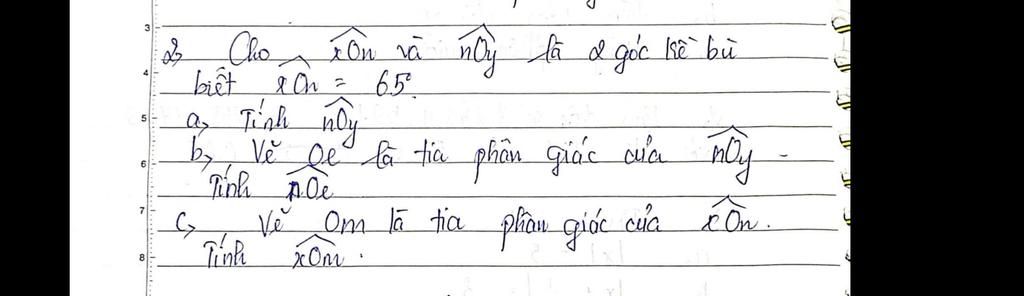 2, Cho xOn và nOy là 2 góc kề bù
biết xOn = 65°.
a, Tính nOy
b, Vẽ Oe là tia phân giác của nOy.
Tính nOe
c, Vẽ Om là tia phân giác của xOn.
Tính xOm.